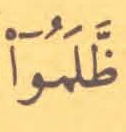 ظَّلَمُوٓا۟